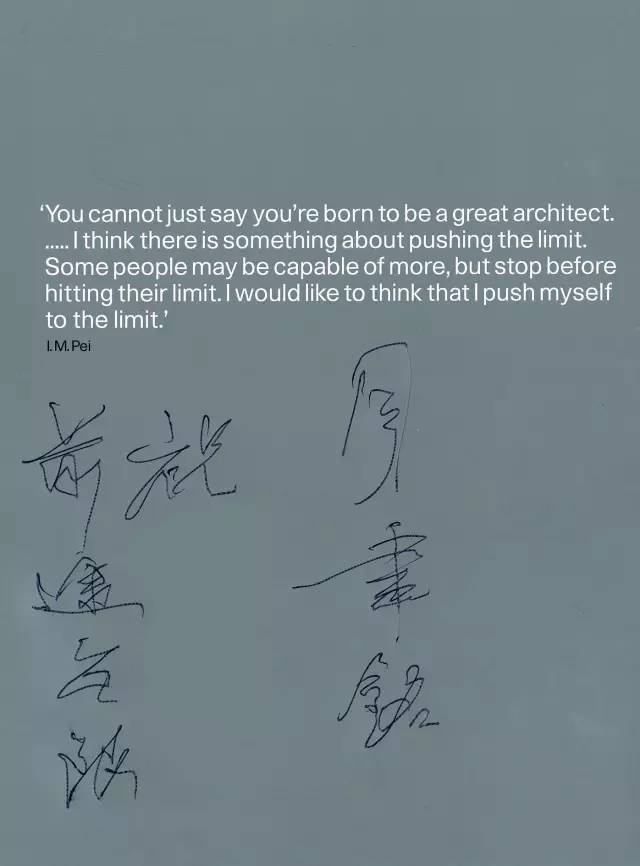 ‘You cannot just say you’re born to be a great architect.
..... I think there is something about pushing the limit.
Some people may be capable of more, but stop before
hitting their limit. I would like to think that I push myself
to the limit.’
I.M. Pei
祝
前途无限